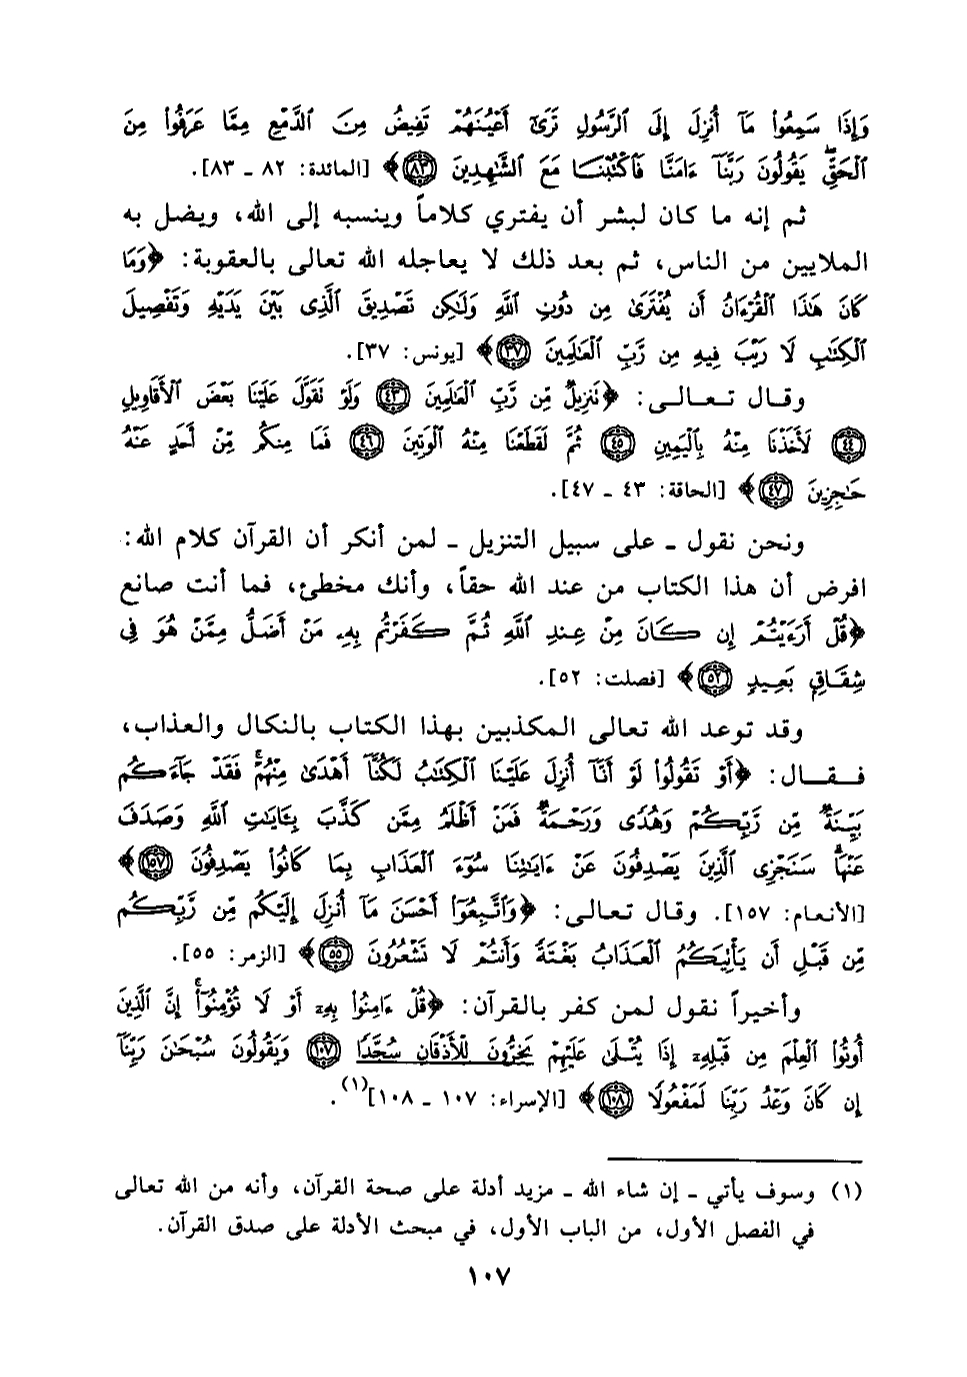 وَإِذَا سَمِعُوا۟ مَآ أُنزِلَ إِلَى ٱلرَّسُولِ تَرَىٰٓ أَعْيُنَهُمْ تَفِيضُ مِنَ ٱلدَّمْعِ مِمَّا عَرَفُوا۟ مِنَ
ٱلْحَقِّ ۖ يَقُولُونَ رَبَّنَآ ءَامَنَّا فَٱكْتُبْنَا مَعَ ٱلشَّٰهِدِينَ ﴿٨٣﴾ [المائدة: ٨٢ ـ ٨٣].
ثم إنه ما كان لبشر أن يفتري كلاماً وينسبه إلى الله، ويضل به
الملايين من الناس، ثم بعد ذلك لا يعاجله الله تعالى بالعقوبة: ﴿وَمَا
كَانَ هَٰذَا ٱلْقُرْءَانُ أَن يُفْتَرَىٰ مِن دُونِ ٱللَّهِ وَلَٰكِن تَصْدِيقَ ٱلَّذِى بَيْنَ يَدَيْهِ وَتَفْصِيلَ
ٱلْكِتَٰبِ لَا رَيْبَ فِيهِ مِن رَّبِّ ٱلْعَٰلَمِينَ ﴿٣٧﴾ [يونس: ٣٧].
وقال تعالى: ﴿نَنزِيلٌ مِّن رَّبِّ ٱلْعَٰلَمِينَ ﴿٤٣﴾ وَلَوْ نَقَوَّلَ عَلَيْنَا بَعْضَ ٱلْأَقَاوِيلِ
﴿٤٤﴾ لَأَخَذْنَا مِنْهُ بِٱلْيَمِينِ ﴿٤٥﴾ ثُمَّ لَقَطَعْنَا مِنْهُ ٱلْوَتِينَ ﴿٤٦﴾ فَمَا مِنكُم مِّنْ أَحَدٍ عَنْهُ
حَٰجِزِينَ ﴿٤٧﴾ [الحاقة: ٤٣ ـ ٤٧].
ونحن نقول ـ على سبيل التنزيل ـ لمن أنكر أن القرآن كلام الله:
افرض أن هذا الكتاب من عند الله حقاً، وأنك مخطئ، فما أنت صانع
﴿قُلْ أَرَءَيْتُمْ إِن كَانَ مِنْ عِندِ ٱللَّهِ ثُمَّ كَفَرْتُم بِهِۦ مَنْ أَضَلُّ مِمَّنْ هُوَ فِى
شِقَاقٍۭ بَعِيدٍ ﴿٥٢﴾ [فصلت: ٥٢].
وقد توعد الله تعالى المكذبين بهذا الكتاب بالنكال والعذاب،
فقال: ﴿أَوْ تَقُولُوا۟ لَوْ أَنَّآ أُنزِلَ عَلَيْنَا ٱلْكِتَٰبُ لَكُنَّآ أَهْدَىٰ مِنْهُمْ ۚ فَقَدْ جَآءَكُم
بَيِّنَةٌ مِّن رَّبِّكُمْ وَهُدًى وَرَحْمَةٌ ۚ فَمَنْ أَظْلَمُ مِمَّن كَذَّبَ بِـَٔايَٰتِ ٱللَّهِ وَصَدَفَ
عَنْهَا ۗ سَنَجْزِى ٱلَّذِينَ يَصْدِفُونَ عَنْ ءَايَٰتِنَا سُوٓءَ ٱلْعَذَابِ بِمَا كَانُوا۟ يَصْدِفُونَ ﴿١٥٧﴾
[الأنعام: ١٥٧]. وقال تعالى: ﴿وَٱتَّبِعُوٓا۟ أَحْسَنَ مَآ أُنزِلَ إِلَيْكُم مِّن رَّبِّكُم
مِّن قَبْلِ أَن يَأْتِيَكُمُ ٱلْعَذَابُ بَغْتَةً وَأَنتُمْ لَا تَشْعُرُونَ ﴿٥٥﴾ [الزمر: ٥٥].
وأخيراً نقول لمن كفر بالقرآن: ﴿قُلْ ءَامِنُوا۟ بِهِۦٓ أَوْ لَا تُؤْمِنُوٓا۟ ۚ إِنَّ ٱلَّذِينَ
أُوتُوا۟ ٱلْعِلْمَ مِن قَبْلِهِۦٓ إِذَا يُتْلَىٰ عَلَيْهِمْ يَخِرُّونَ لِلْأَذْقَانِ سُجَّدًا ﴿١٠٧﴾ وَيَقُولُونَ سُبْحَٰنَ رَبِّنَآ
إِن كَانَ وَعْدُ رَبِّنَا لَمَفْعُولًا ﴿١٠٨﴾ [الإسراء: ١٠٧ ـ ١٠٨](١).
(١) وسوف يأتي ـ إن شاء الله ـ مزيد أدلة على صحة القرآن، وأنه من الله تعالى
في الفصل الأول، من الباب الأول، في مبحث الأدلة على صدق القرآن.
١٠٧